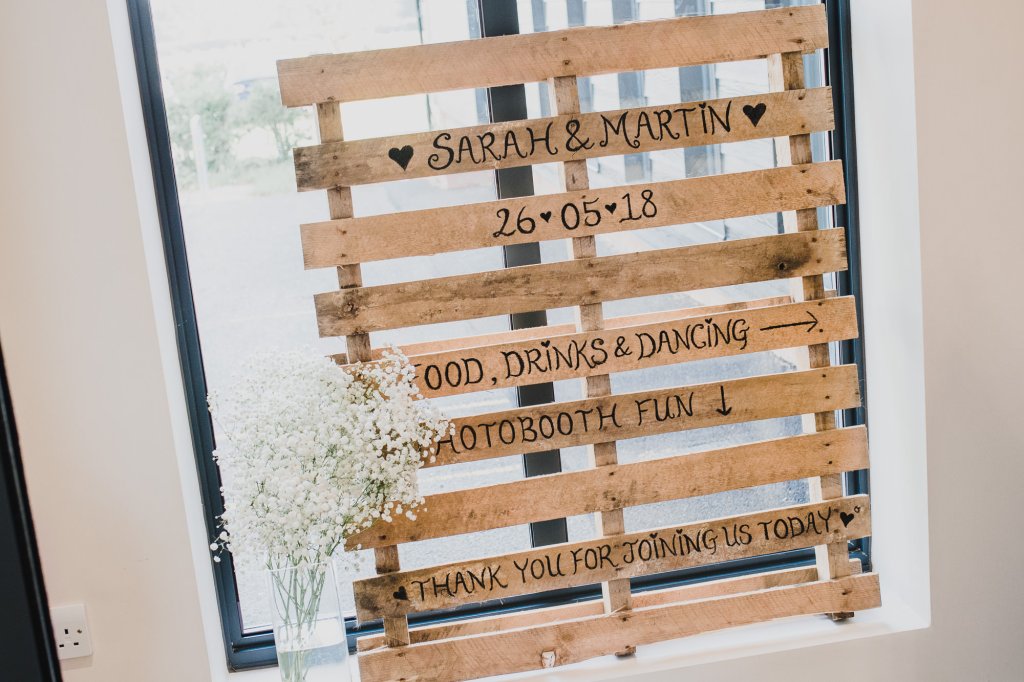 ♥ SARAH & MARTIN ♥
26♥05♥18
FOOD, DRINKS & DANCING →
PHOTOBOOTH FUN ↓
♥ THANK YOU FOR JOINING US TODAY ♥